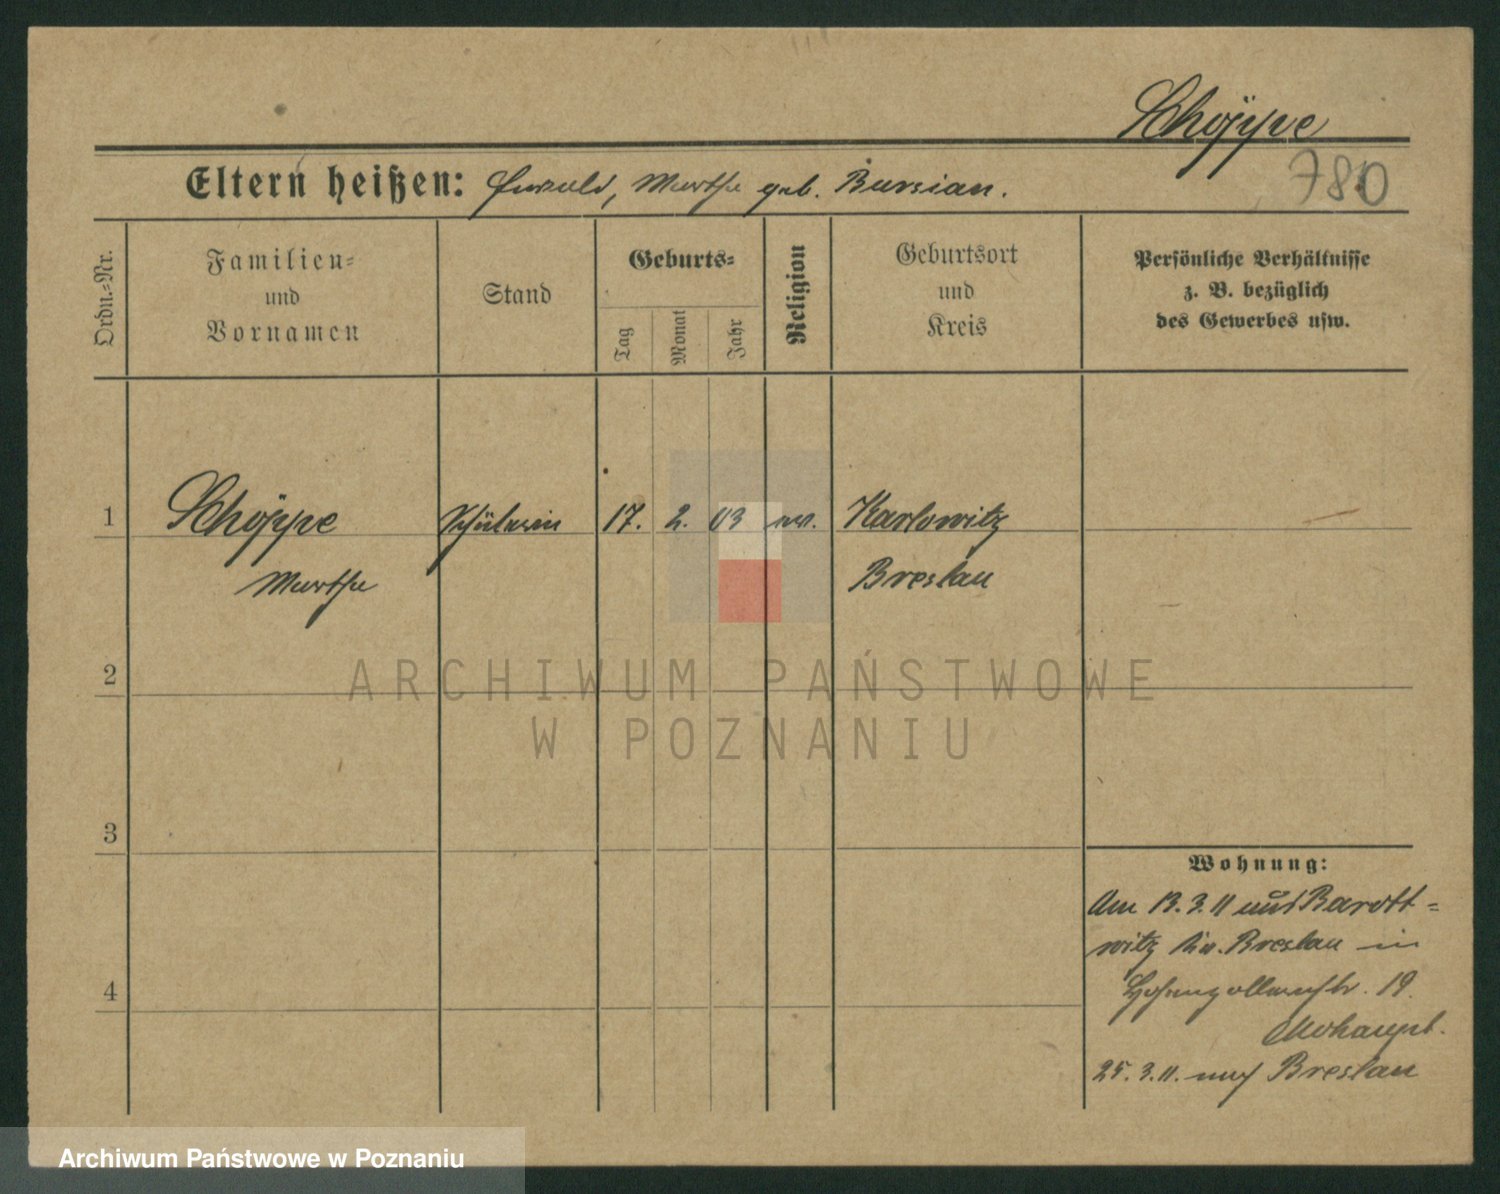 Schöppe
780
Eltern heißen: Ewald, Martha geb. Bursian.
Ordn.-Nr.
Familien-
und
Vornamen
Stand
Geburts-
Tag
Monat
Jahr
Religion
Geburtsort
und
Kreis
Persönliche Verhältnisse
z. B. bezüglich
des Gewerbes usw.
1 Schöppe Schülerin 17. 2. 03 ev. Karlowitz
Martha Breslau
2
3
4
Wohnung:
Am 13.3.11 aus Barott-
witz Kr. Breslau in
Hohenzollernstr. 19.
25.3.11. nach Breslau
ARCHIWUM PAŃSTWOWE
W POZNANIU
Archiwum Państwowe w Poznaniu